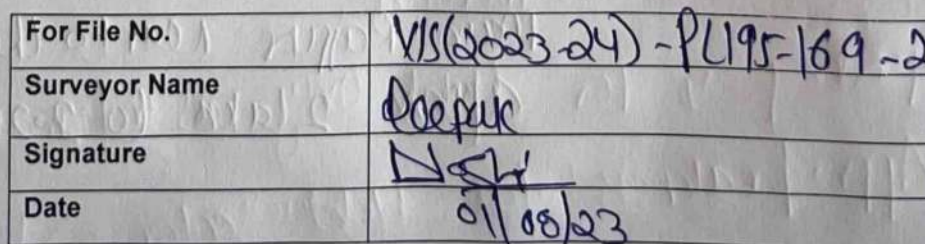 For File No. VIS(2023-24)-PL195-169-2
Surveyor Name Deepak
Signature
Date 01/08/23